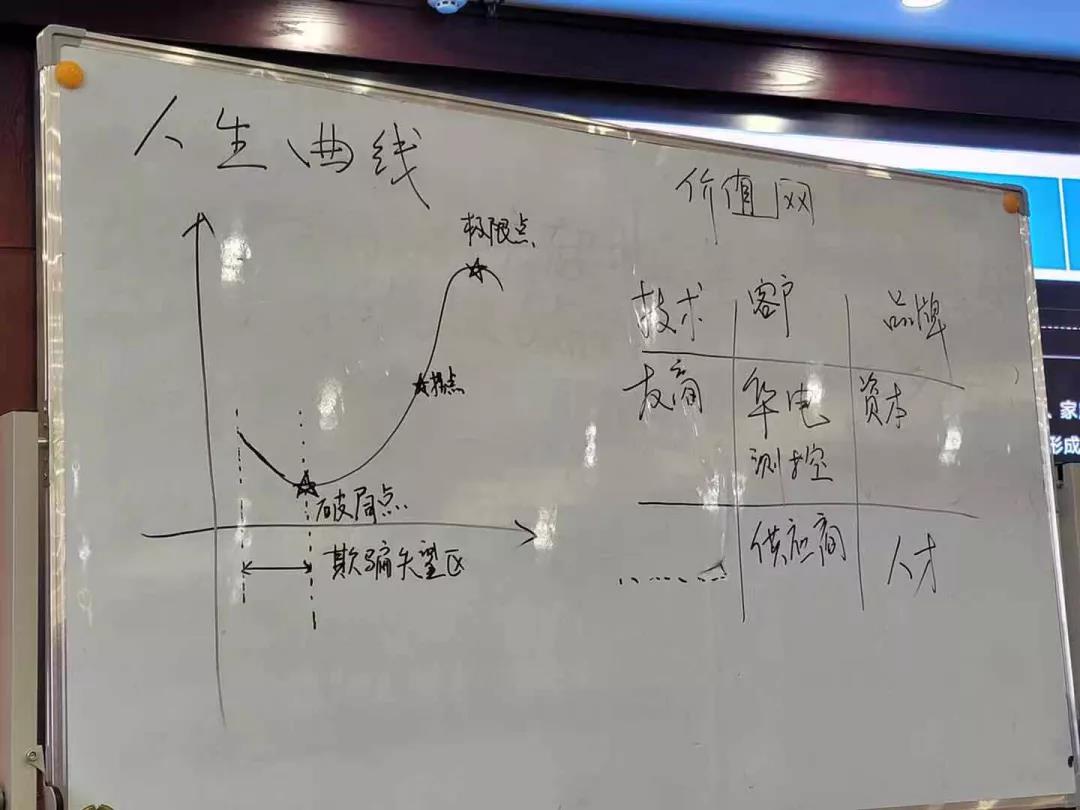 人生曲线
极限点
拐点
破局点
欺骗失望区
价值网
技术 客户 品牌
友商 华电 资本
测控
供应商 人才
......
、家
形成